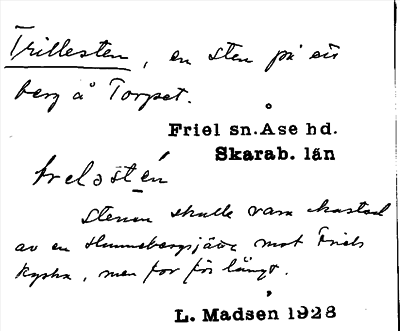 Trillesten, en sten på ett
berg å Torpet.
Friel sn. Åse hd.
Skarab. län
trelɔsté̱n
stenen skulle vara kastad
av en Hunnebergsjätte mot Friels
kyrka, men for för långt.
L. Madsen 1928